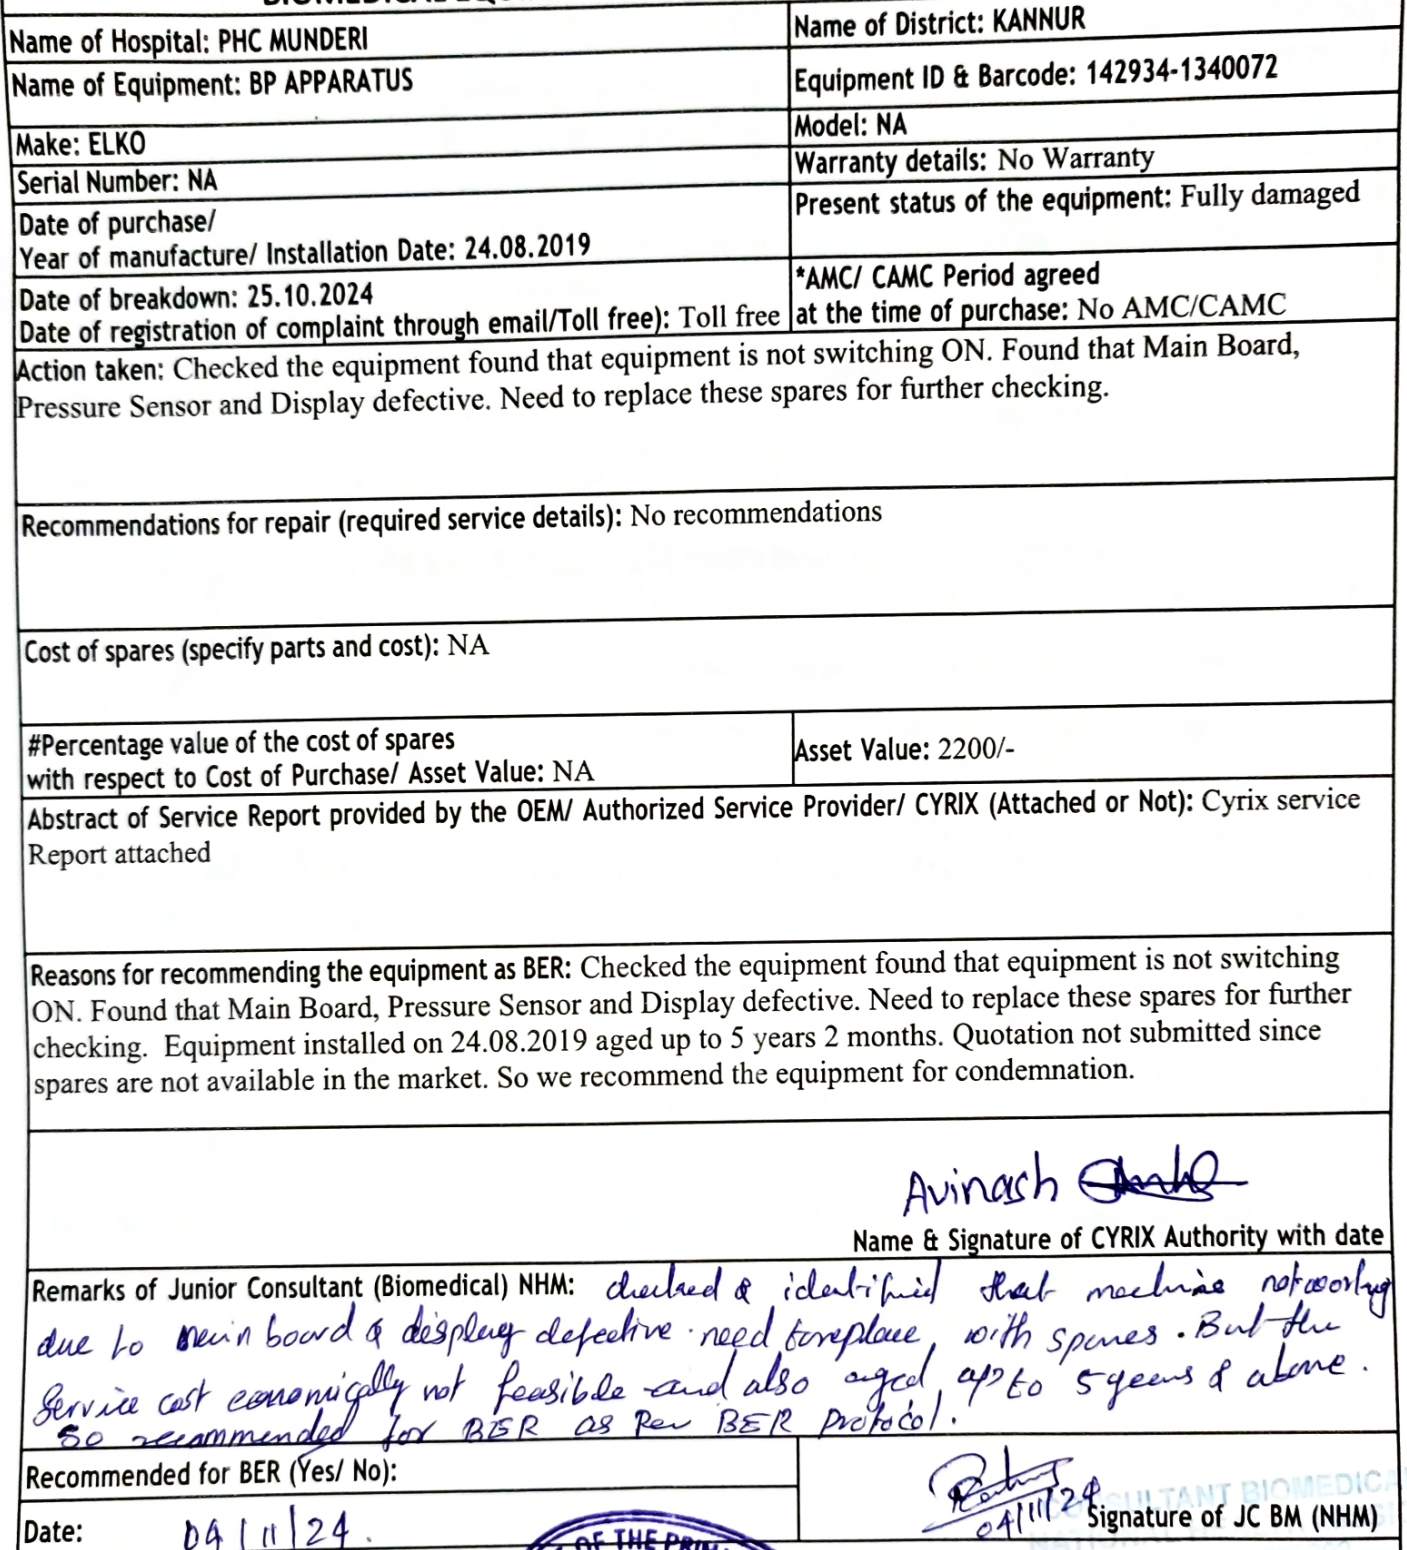 Name of Hospital: PHC MUNDERI
Name of District: KANNUR
Name of Equipment: BP APPARATUS
Equipment ID & Barcode: 142934-1340072
Make: ELKO
Model: NA
Serial Number: NA
Warranty details: No Warranty
Date of purchase/
Year of manufacture/ Installation Date: 24.08.2019
Present status of the equipment: Fully damaged
Date of breakdown: 25.10.2024
Date of registration of complaint through email/Toll free): Toll free
*AMC/ CAMC Period agreed
at the time of purchase: No AMC/CAMC
Action taken: Checked the equipment found that equipment is not switching ON. Found that Main Board,
Pressure Sensor and Display defective. Need to replace these spares for further checking.
Recommendations for repair (required service details): No recommendations
Cost of spares (specify parts and cost): NA
#Percentage value of the cost of spares
with respect to Cost of Purchase/ Asset Value: NA
Asset Value: 2200/-
Abstract of Service Report provided by the OEM/ Authorized Service Provider/ CYRIX (Attached or Not): Cyrix service
Report attached
Reasons for recommending the equipment as BER: Checked the equipment found that equipment is not switching
ON. Found that Main Board, Pressure Sensor and Display defective. Need to replace these spares for further
checking. Equipment installed on 24.08.2019 aged up to 5 years 2 months. Quotation not submitted since
spares are not available in the market. So we recommend the equipment for condemnation.
Avinash
Name & Signature of CYRIX Authority with date
Remarks of Junior Consultant (Biomedical) NHM: checked & identified that machine not working
due to main board & display defective. need to replace with spares. But the
Service cost economically not feasible and also aged up to 5 years & above.
So recommended for BER as Per BER Protocol.
Recommended for BER (Yes/ No):
Date: 04/11/24.
04/11/24
CONSULTANT BIOMEDICA
Signature of JC BM (NHM)
OF THE PRIM